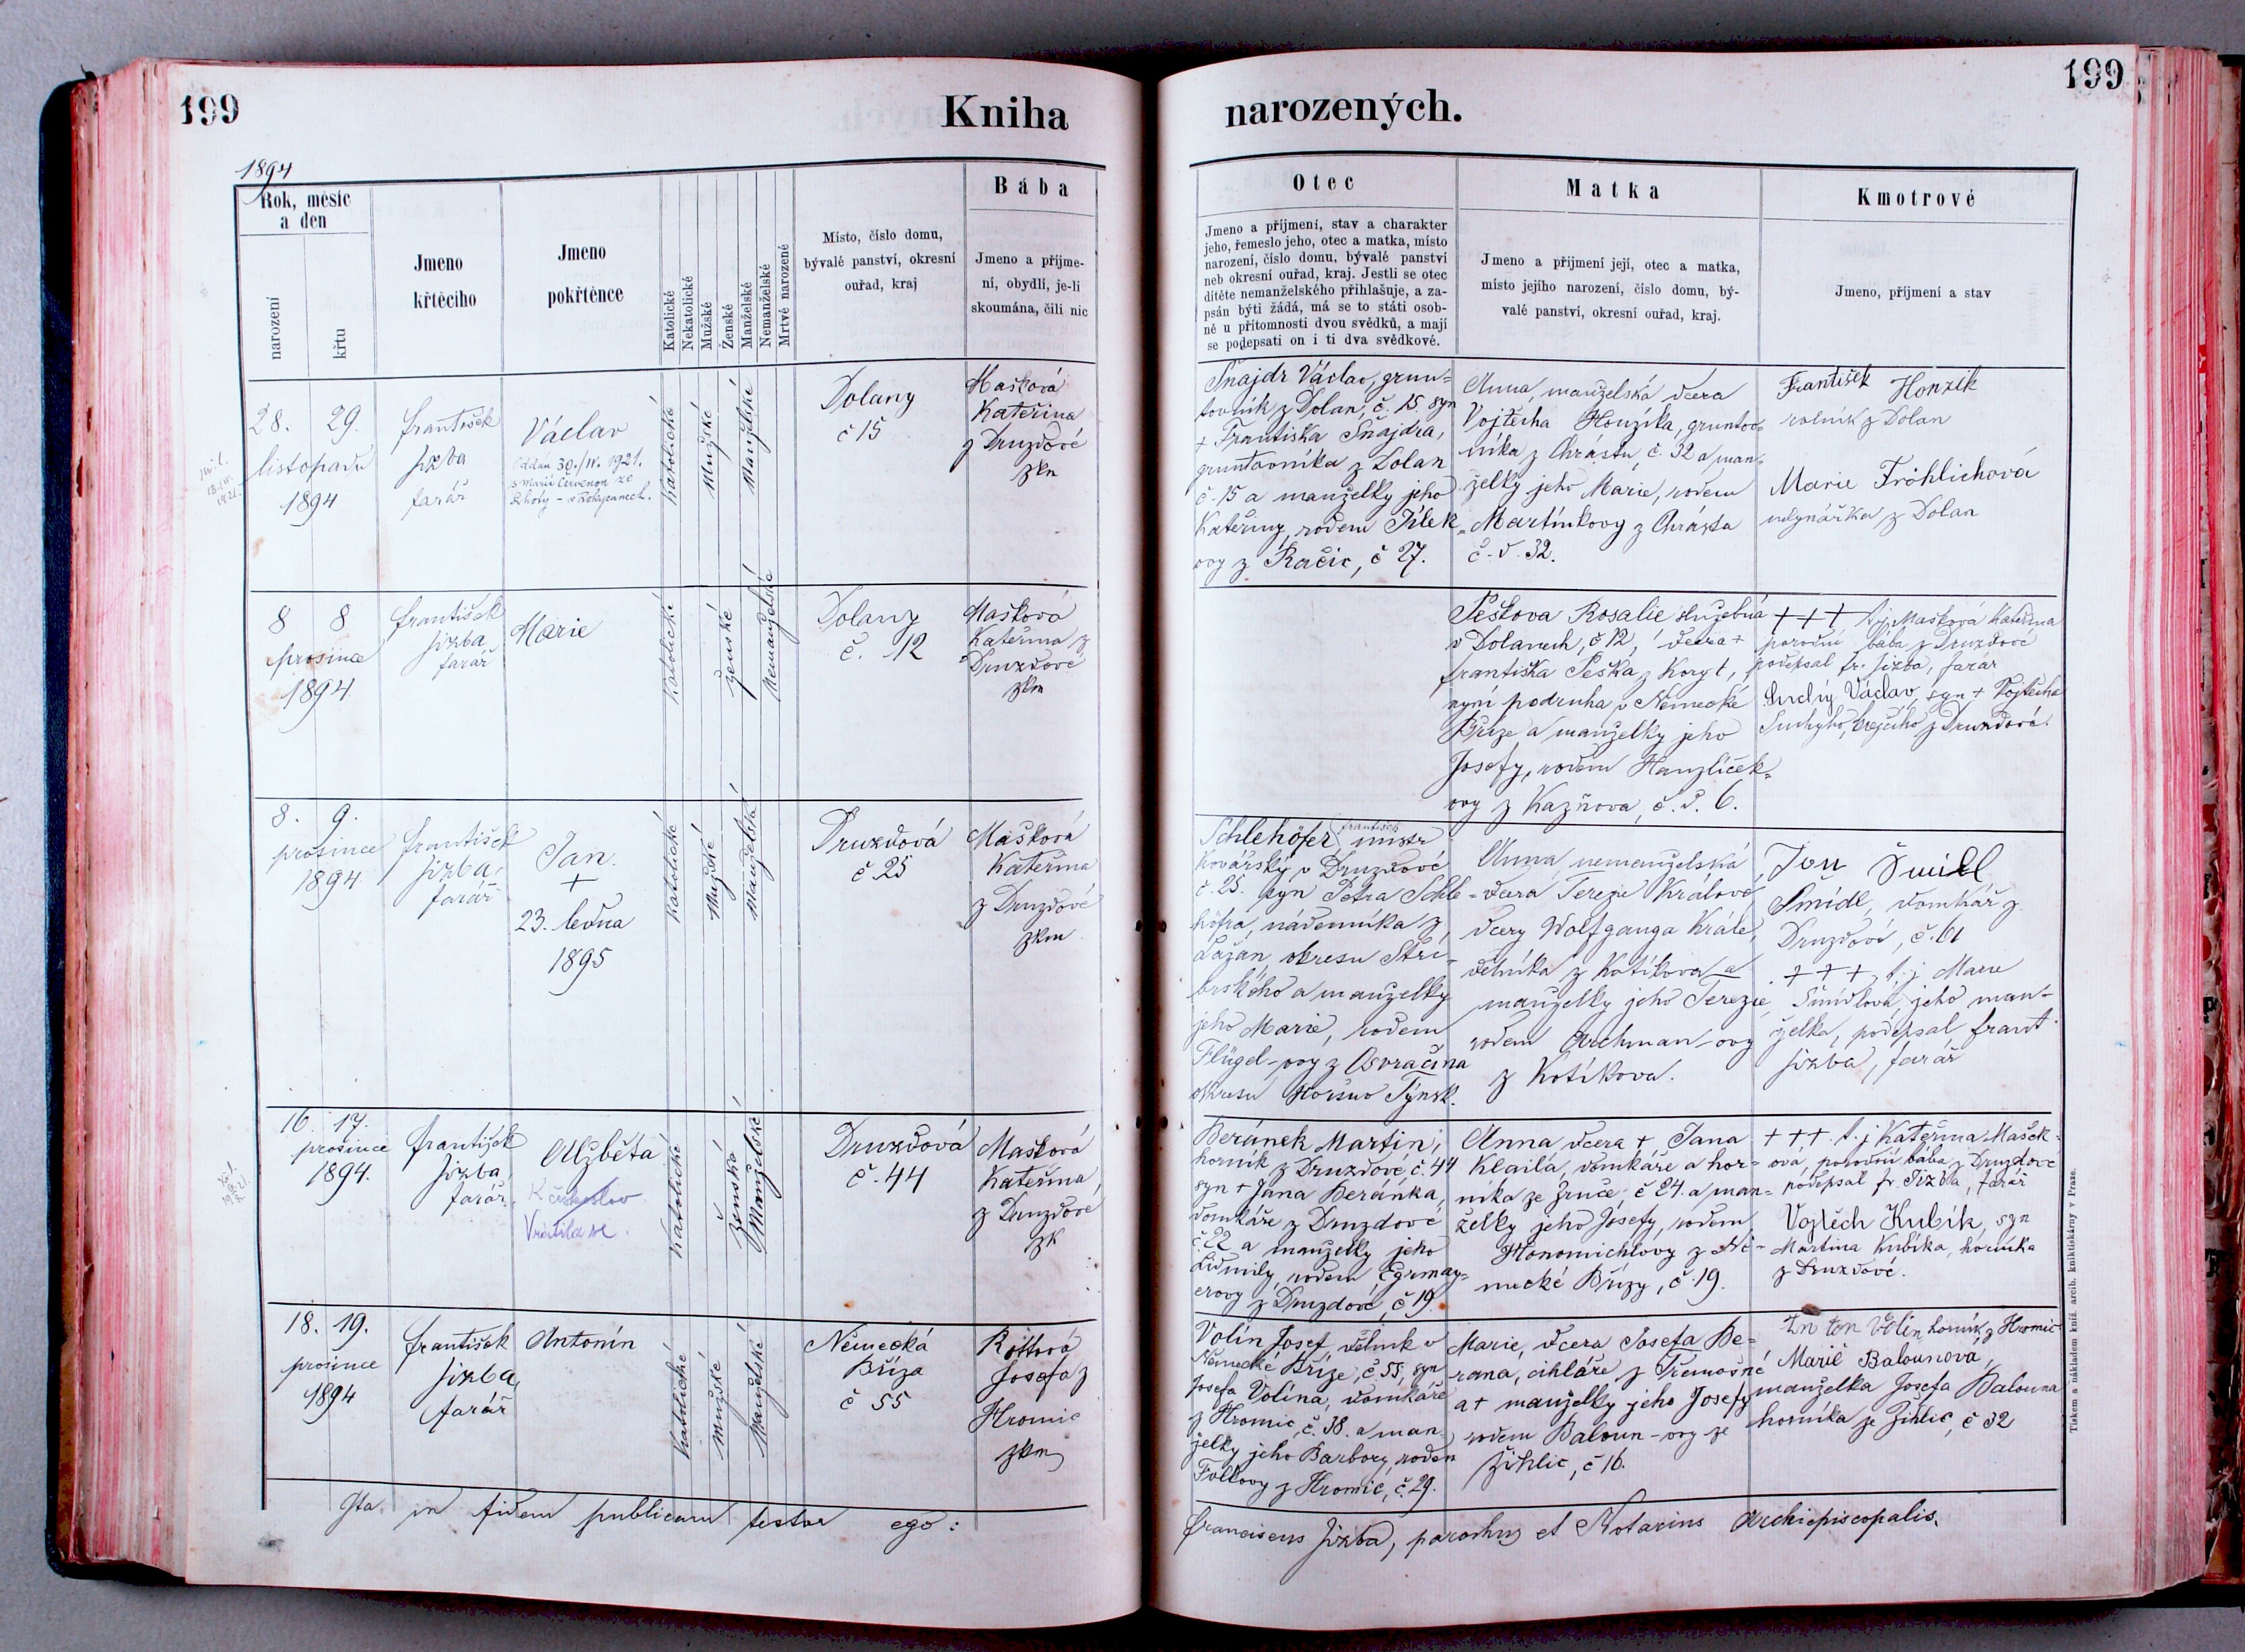 199
Kniha
narozených.
199
1894
Rok, měsíc
a den
narození
křtu
Jmeno
křtěcího
Jmeno
pokřtěnce
Katolické
Nekatolické
Mužské
Ženské
Manželské
Nemanželské
Mrtvě narozené
Místo, číslo domu,
bývalé panství, okresní
ouřad, kraj
Bába
Jmeno a příjme-
ní, obydlí, je-li
skoumána, čili nic
Otec
Jmeno a příjmení, stav a charakter
jeho, řemeslo jeho, otec a matka, místo
narození, číslo domu, bývalé panství
neb okresní ouřad, kraj. Jestli se otec
dítěte nemanželského přihlašuje, a za-
psán býti žádá, má se to státi osob-
ně u přítomnosti dvou svědků, a mají
se podepsati on i ti dva svědkové.
Matka
Jmeno a příjmení její, otec a matka,
místo jejího narození, číslo domu, bý-
valé panství, okresní ouřad, kraj.
Kmotrové
Jmeno, příjmení a stav
28. 29.
listopadu
1894
František
Jizba
farář
Václav
oddán 30./IV. 1921.
s Marií Červenou ze
Lhoty - v Rokycanech.
Katolické
Mužské
Manželské
Dolany
č 15
Mašková
Kateřina
z Druzdové
zkn
Šnajdr Václav, grun=
tovník z Dolan, č. 15. syn
+ Františka Šnajdra,
gruntovníka z Dolan
č. 15 a manželky jeho
Kateřiny, rodem Jílek
ovy z Račic, č 27.
Anna, manželská dcera
Vojtěcha Honzíka, gruntov=
níka z Chrástu, č. 32 a man=
želky jeho Marie, rodem
Martínkovy z Chrásta
č. d. 32.
František Honzik
rolník z Dolan
Marie Fröhlichová
mlynářka z Dolan
8 8
prosince
1894
František
Jizba
farář
Marie
Katolické
ženské
Nemanželské
Dolany
č. 12
Mašková
Kateřina z
Druzdové
zkn
Peškova Rosalie služebná
v Dolanech, č 12, dcera +
Františka Peška z Koryt,
nyní podruha v Německé
Bříze a manželky jeho
Josefy, rodem Hanzlíček=
ovy z Kaznova, č. d. 6.
+++ t.j. Mašková Kateřina
porodní bába z Druzdové
podepsal fr. Jizba, farář
Suchý Václav, syn + Vojtěcha
Suchého, z Druzdové.
8. 9.
prosince
1894
František
Jizba,
farář
Jan.
+
23. ledna
1895
Katolické
Mužské
Manželské
Druzdová
č 25
Mašková
Kateřina
z Druzdové
zkn
Schlehöfer František mistr
kovářský v Druzdové
č. 25. syn Petra Schle-
höfra, nádenníka z
Lažan, okresu Stří-
brského a manželky
jeho Marie, rodem
Flügel-ovy z Osvračína
okresu Horšův Týnsk.
Anna nemanželská
dcera Terezie Králové,
dcery Wolfganga Krále,
dělníka z Kotíkova a
manželky jeho Terezie
rodem Archman-ovy
z Kotíkova.
Jan Šmidl
Šmídl, domkář z
Druzdové, č. 61
+++, t.j Marie
Šmídlová, jeho man-
želka, podepsal Frant
Jizba, farář
16. 17.
prosince
1894.
František
Jizba,
farář.
Alžběta
Vrátila se.
Katolické
ženské
Manželské
Druzdová
č. 44
Mašková
Kateřina,
z Druzdové
zk
Beránek Martin,
horník z Druzdové, č. 44
syn + Jana Beránka,
domkáře z Druzdové
č. 22 a manželky jeho
Lidmily, rodem Egrmay=
erovy z Druzdové, č 19.
Anna dcera + Jana
Klaila, domkáře a hor=
níka ze Zruče, č 24. a man=
želky jeho Josefy, rodem
Honomichlovy z Ně-
mecké Břízy, č. 19.
+++. t. j Kateřina Mašek-
ová, porodní bába z Druzdové
podepsal fr. Jizba, farář
Vojtěch Kubík, syn
Martina Kubíka, horníka
z Druzdové.
18. 19.
prosince
1894
František
Jizba
farář
Antonín
Katolické
mužské
Manželské
Německá
Bříza
č 55
Rottová
Josefa z
Hromic
zkn
Volín Josef, dělník v
Německé Bříze, č 55, syn
Josefa Volína, domkáře
z Hromic, č. 38. a man
želky jeho Barbory, rodem
Folkovy z Hromic, č. 29.
Marie, dcera Josefa Be-
rana, cihláře z Třemošné
a + manželky jeho Josefy
rodem Baloun-ovy ze
Žihlic, č 16.
An ton Volín horník z Hromic
Marie Balounová,
manželka Josefa Balouna
horníka ze Žihlic, č 32
Ita in fidem publicam testor ego:
Franciscus Jizba, parochus et Notarius Archiepiscopalis.
Tiskem a nákladem kníž. arcib. knihtiskárny v Praze.